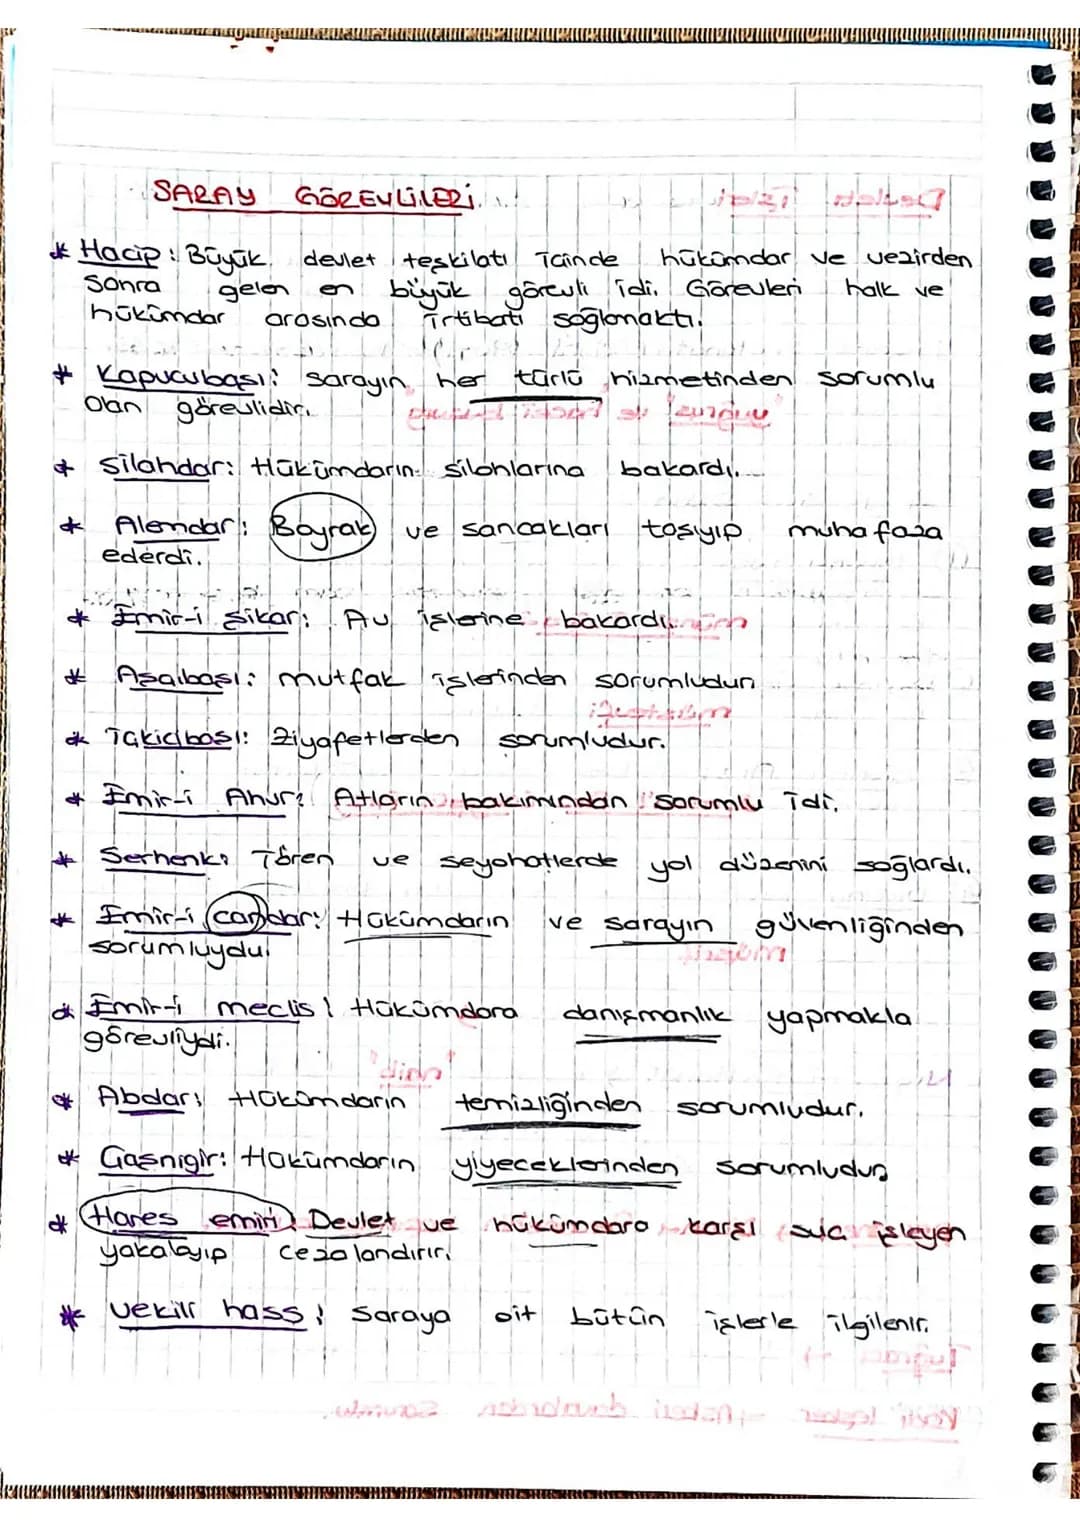 SARAY GÖREVLİLERİ
* Hacip: Büyük devlet teşkilatı içinde hükümdar ve vezirden
sonra gelen en büyük görevli idi. Görevleri halk ve
hükümdar arasında irtibatı sağlamaktı.
* Kapucubaşı: Sarayın her türlü hizmetinden sorumlu
olan görevlidir.
* Silahdar: Hükümdarın silahlarına bakardı.
* Alemdar: Bayrak ve sancakları taşıyıp muhafaza
ederdi.
* Emir-i şikar: Av işlerine bakardı.
* Aşçıbaşı: mutfak işlerinden sorumludur
* Takicibaşı: Ziyafetlerden sorumludur.
* Emir-i Ahur: Atların bakımından sorumlu idi.
* Serhenk: Tören ve seyahatlerde yol düzenini sağlardı.
* Emir-i candar: Hükümdarın ve sarayın güvenliğinden
sorumluydu.
* Emir-i meclis: Hükümdara danışmanlık yapmakla
görevliydi.
* Abdar: Hükümdarın temizliğinden sorumludur.
* Çaşnigir: Hükümdarın yiyeceklerinden sorumludur
* Hares emiri Devlet ve hükümdara karşı suç işleyen
yakalayıp cezalandırır.
* Vekili hass: Saraya ait bütün işlerle ilgilenir.